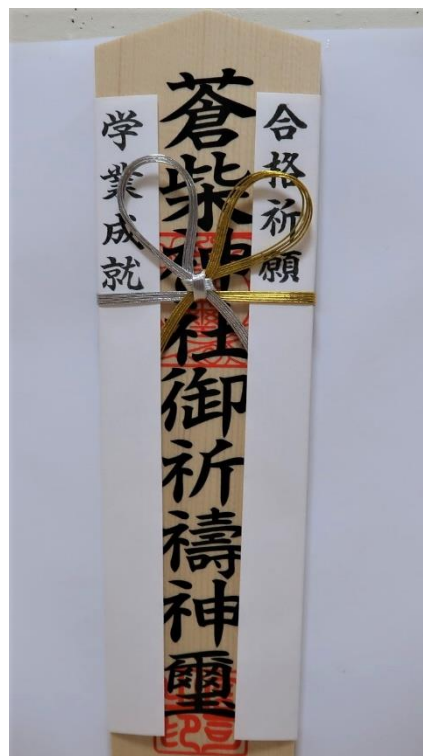 合格祈願
蒼柴神社御祈禱神璽
学業成就